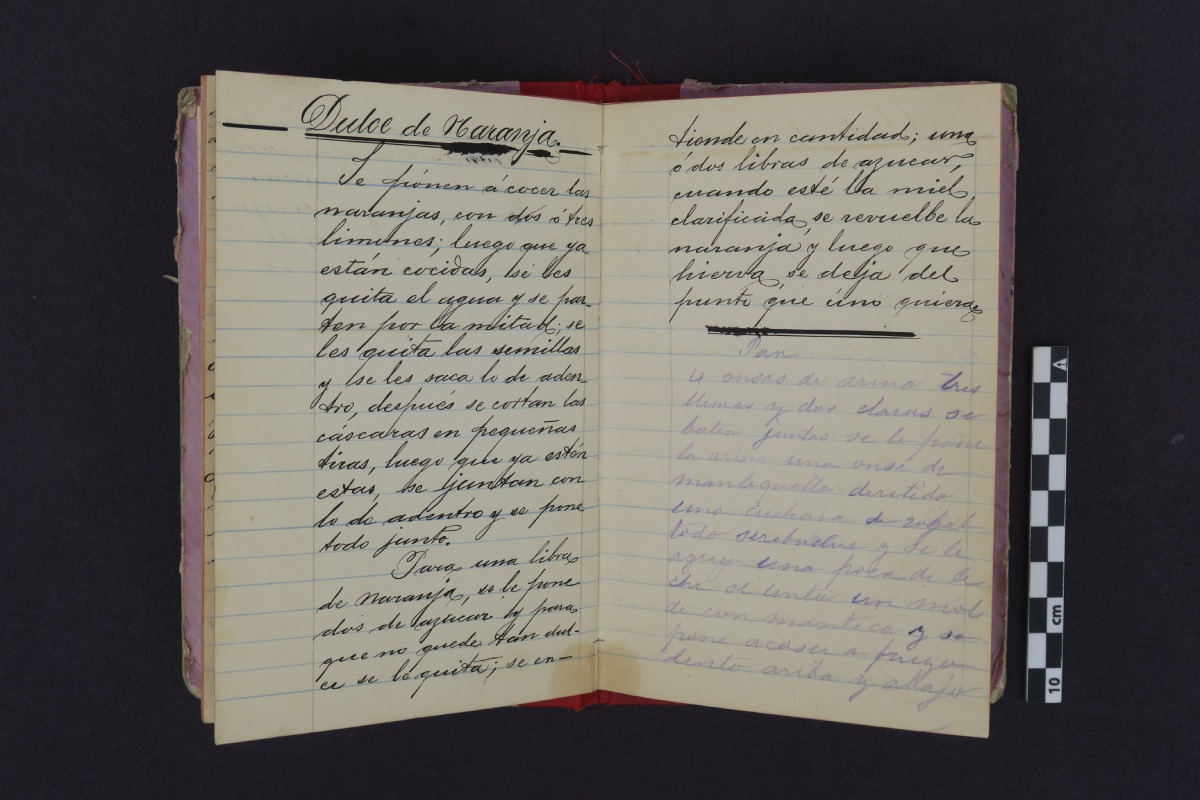 Dulce de Naranja.
Se pónen á cocer las
naranjas, con dos ó tres
limones; luego que ya
están cocidas, se les
quita el agua y se par-
ten por la mitad; se
les quita las semillas
y se les saca lo de aden-
tro, después se cortan las
cáscaras en pequeñas
tiras, luego que ya estén
estas, se juntan con
lo de adentro y se pone
todo junto.
Para una libra
de naranja, se le pone
dos de azúcar y para
que no quede tan dul-
ce se le quita; se en-
tiende en cantidad; una
ó dos libras de azucar,
cuando esté la miel
clarificada, se revuelbe la
naranja y luego que
hierva, se deja del
punto que úno quiera.
Pan
4 onsas de arina tres
llemas y dos claras se
baten juntas se le pone
la arina una onsa de
mantequilla deritida
una cuchara de
todo serebuelve y se le
una poca de le
che se unta un mol
de con mantica y se
pone acoser a fuego
lento ariba y abajo
10 cm